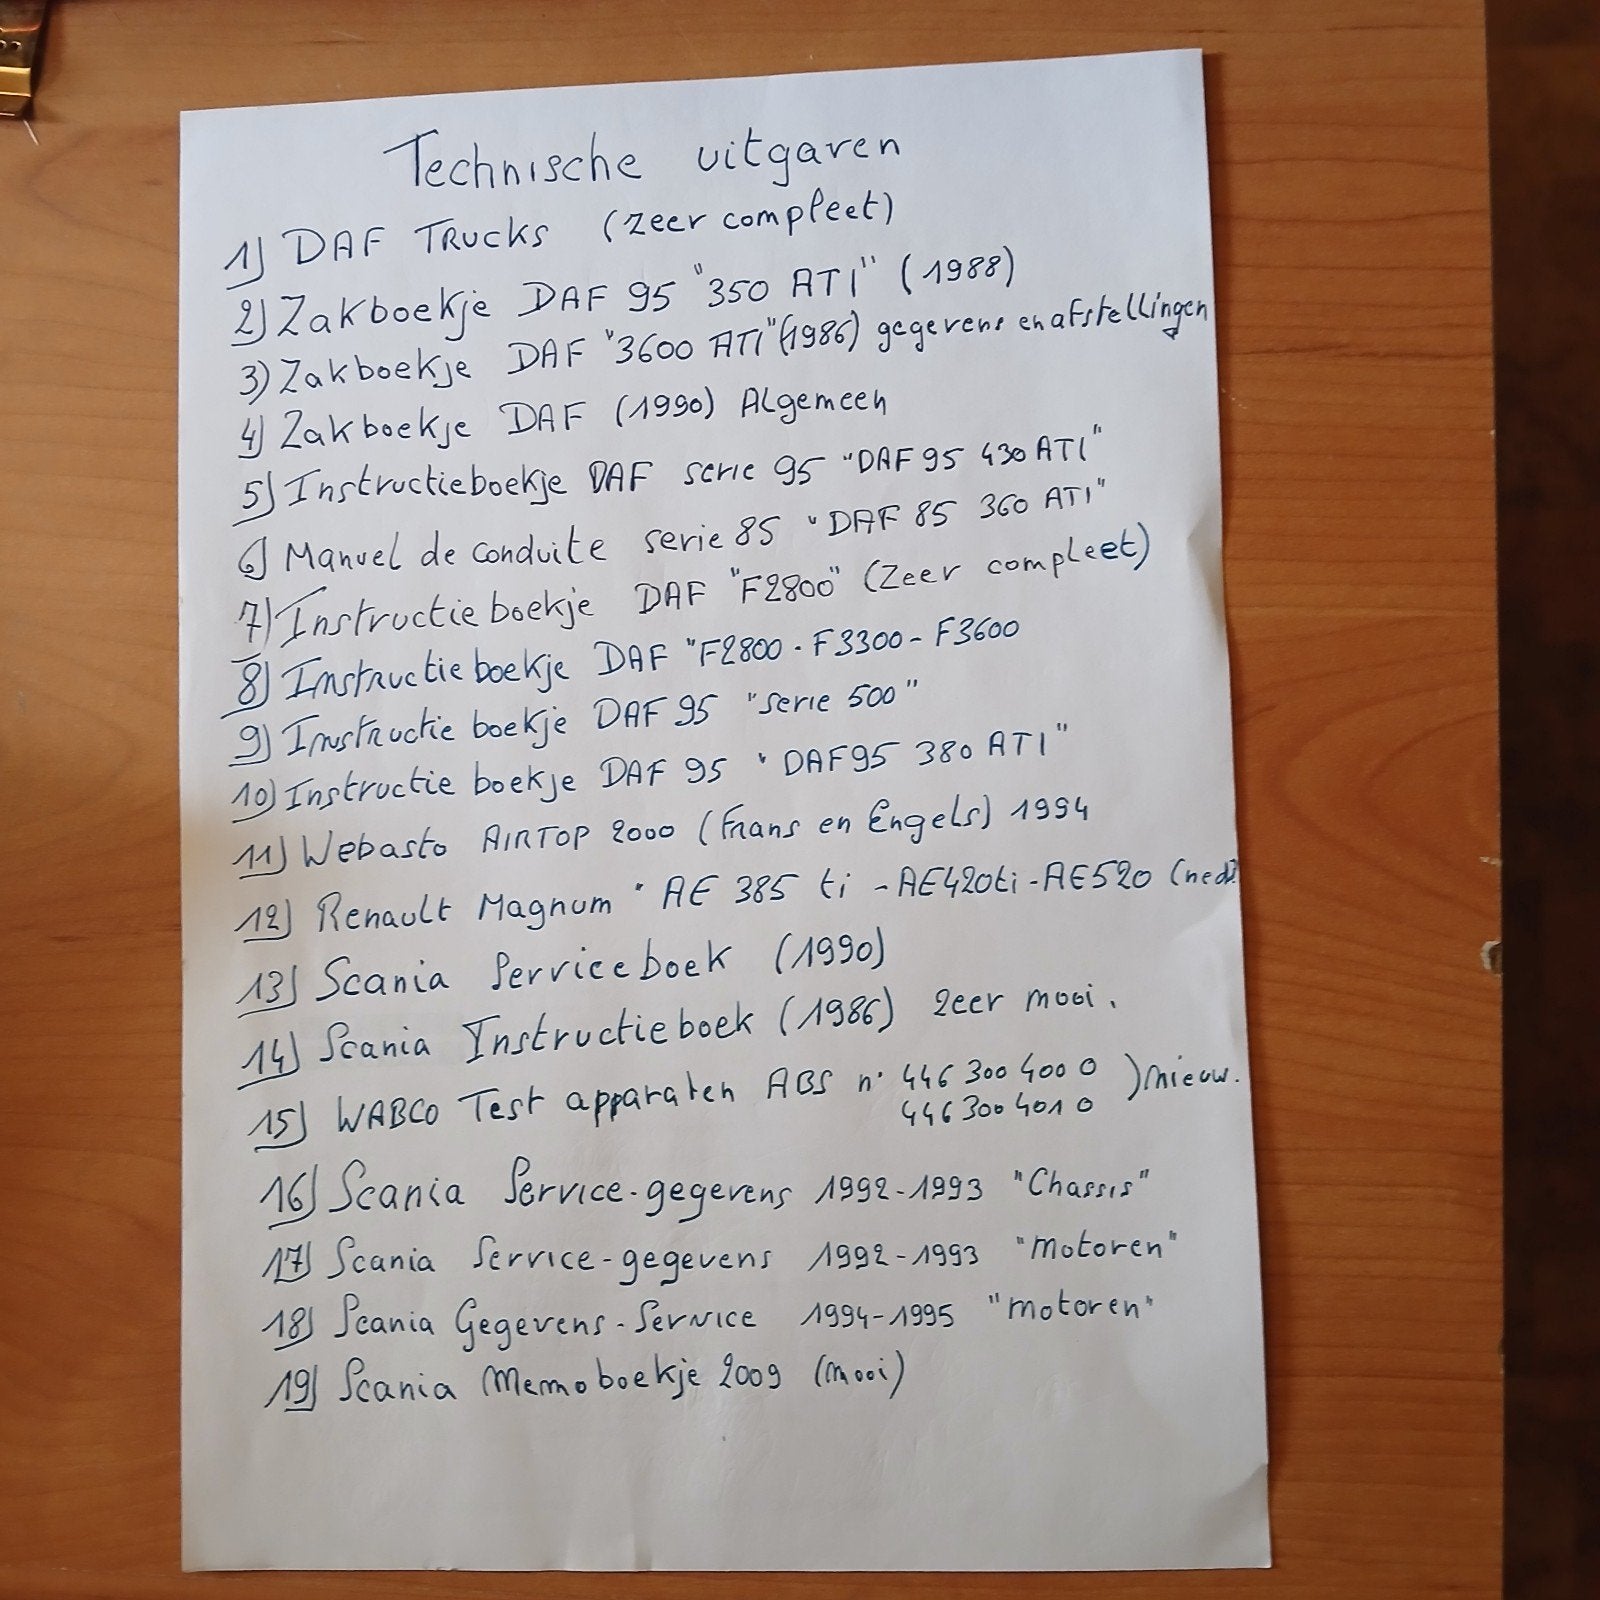 Technische uitgaven
1) DAF TRUCKS (zeer compleet)
2) Zakboekje DAF 95 "350 ATI" (1988)
3) Zakboekje DAF "3600 ATI" (1986) gegevens en afstellingen
4) Zakboekje DAF (1990) Algemeen
5) Instructieboekje DAF serie 95 "DAF 95 430 ATI"
6) Manuel de conduite serie 85 "DAF 85 360 ATI"
7) Instructieboekje DAF "F2800" (Zeer compleet)
8) Instructieboekje DAF "F2800 - F3300 - F3600
9) Instructie boekje DAF 95 "serie 500"
10) Instructie boekje DAF 95 "DAF95 380 ATI"
11) Webasto AIRTOP 2000 (Frans en Engels) 1994
12) Renault Magnum " AE 385 ti - AE420ti - AE520 (ned)
13) Scania Serviceboek (1990)
14) Scania Instructieboek (1986) zeer mooi.
15) WABCO Test apparaten ABS n° 446 300 400 0 ) nieuw.
446 300 401 0
16) Scania Service-gegevens 1992-1993 "Chassis"
17) Scania Service-gegevens 1992-1993 "Motoren"
18) Scania Gegevens-Service 1994-1995 "Motoren"
19) Scania Memoboekje 2009 (mooi)